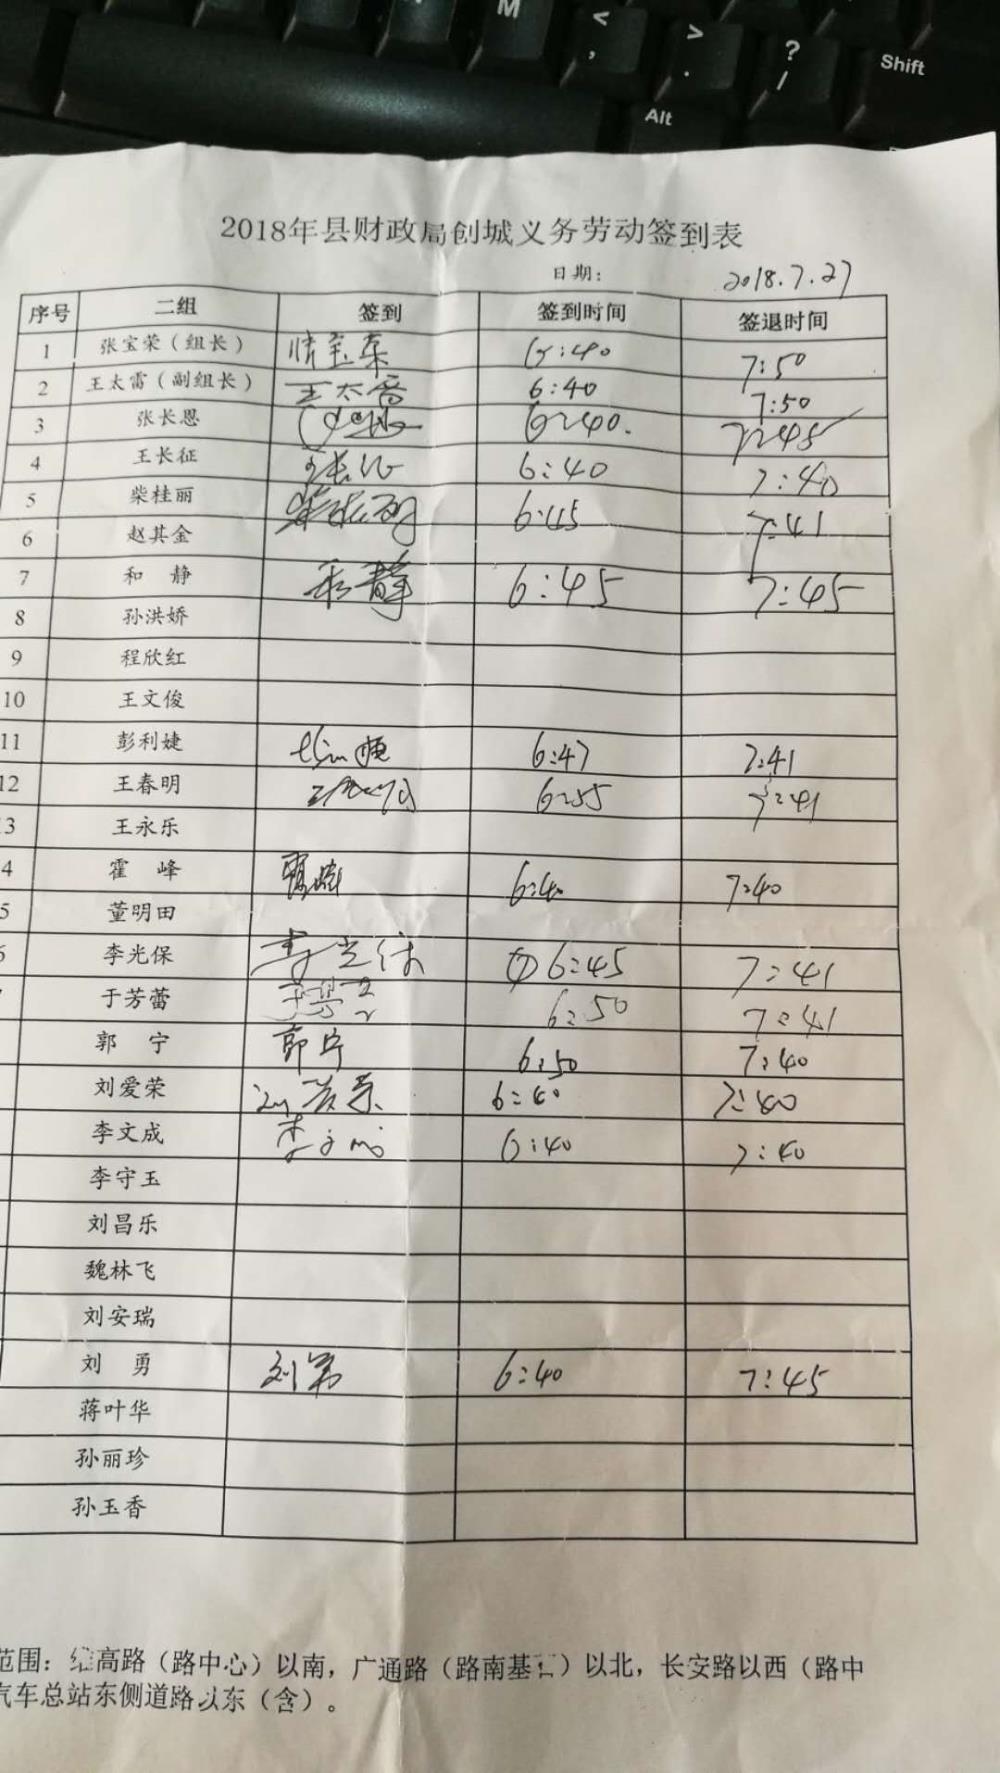 M
< ,
> .
? /
Shift
Alt
2018年县财政局创城义务劳动签到表
日期: 2018.7.27
序号 二组 签到 签到时间 签退时间
1 张宝荣（组长） 张宝荣 6:40 7:50
2 王太雷（副组长） 王太雷 6:40 7:50
3 张长恩 6:40. 7:45
4 王长征 王长征 6:40 7:40
5 柴桂丽 柴桂丽 6:45 7:41
6 赵其金
7 和 静 和静 6:45 7:45
8 孙洪娇
9 程欣红
10 王文俊
11 彭利婕 6:47 7:41
12 王春明 王春明 6:55 7:41
3 王永乐
4 霍 峰 霍峰 6:40 7:40
5 董明田
6 李光保 李光保 6:45 7:41
于芳蕾 6:50 7:41
郭 宁 郭宁 6:50 7:40
刘爱荣 刘爱荣 6:40 7:40
李文成 李文成 6:40 7:40
李守玉
刘昌乐
魏林飞
刘安瑞
刘 勇 刘勇 6:40 7:45
蒋叶华
孙丽珍
孙玉香
范围：维高路（路中心）以南，广通路（路南基石）以北，长安路以西（路中
汽车总站东侧道路以东（含）。